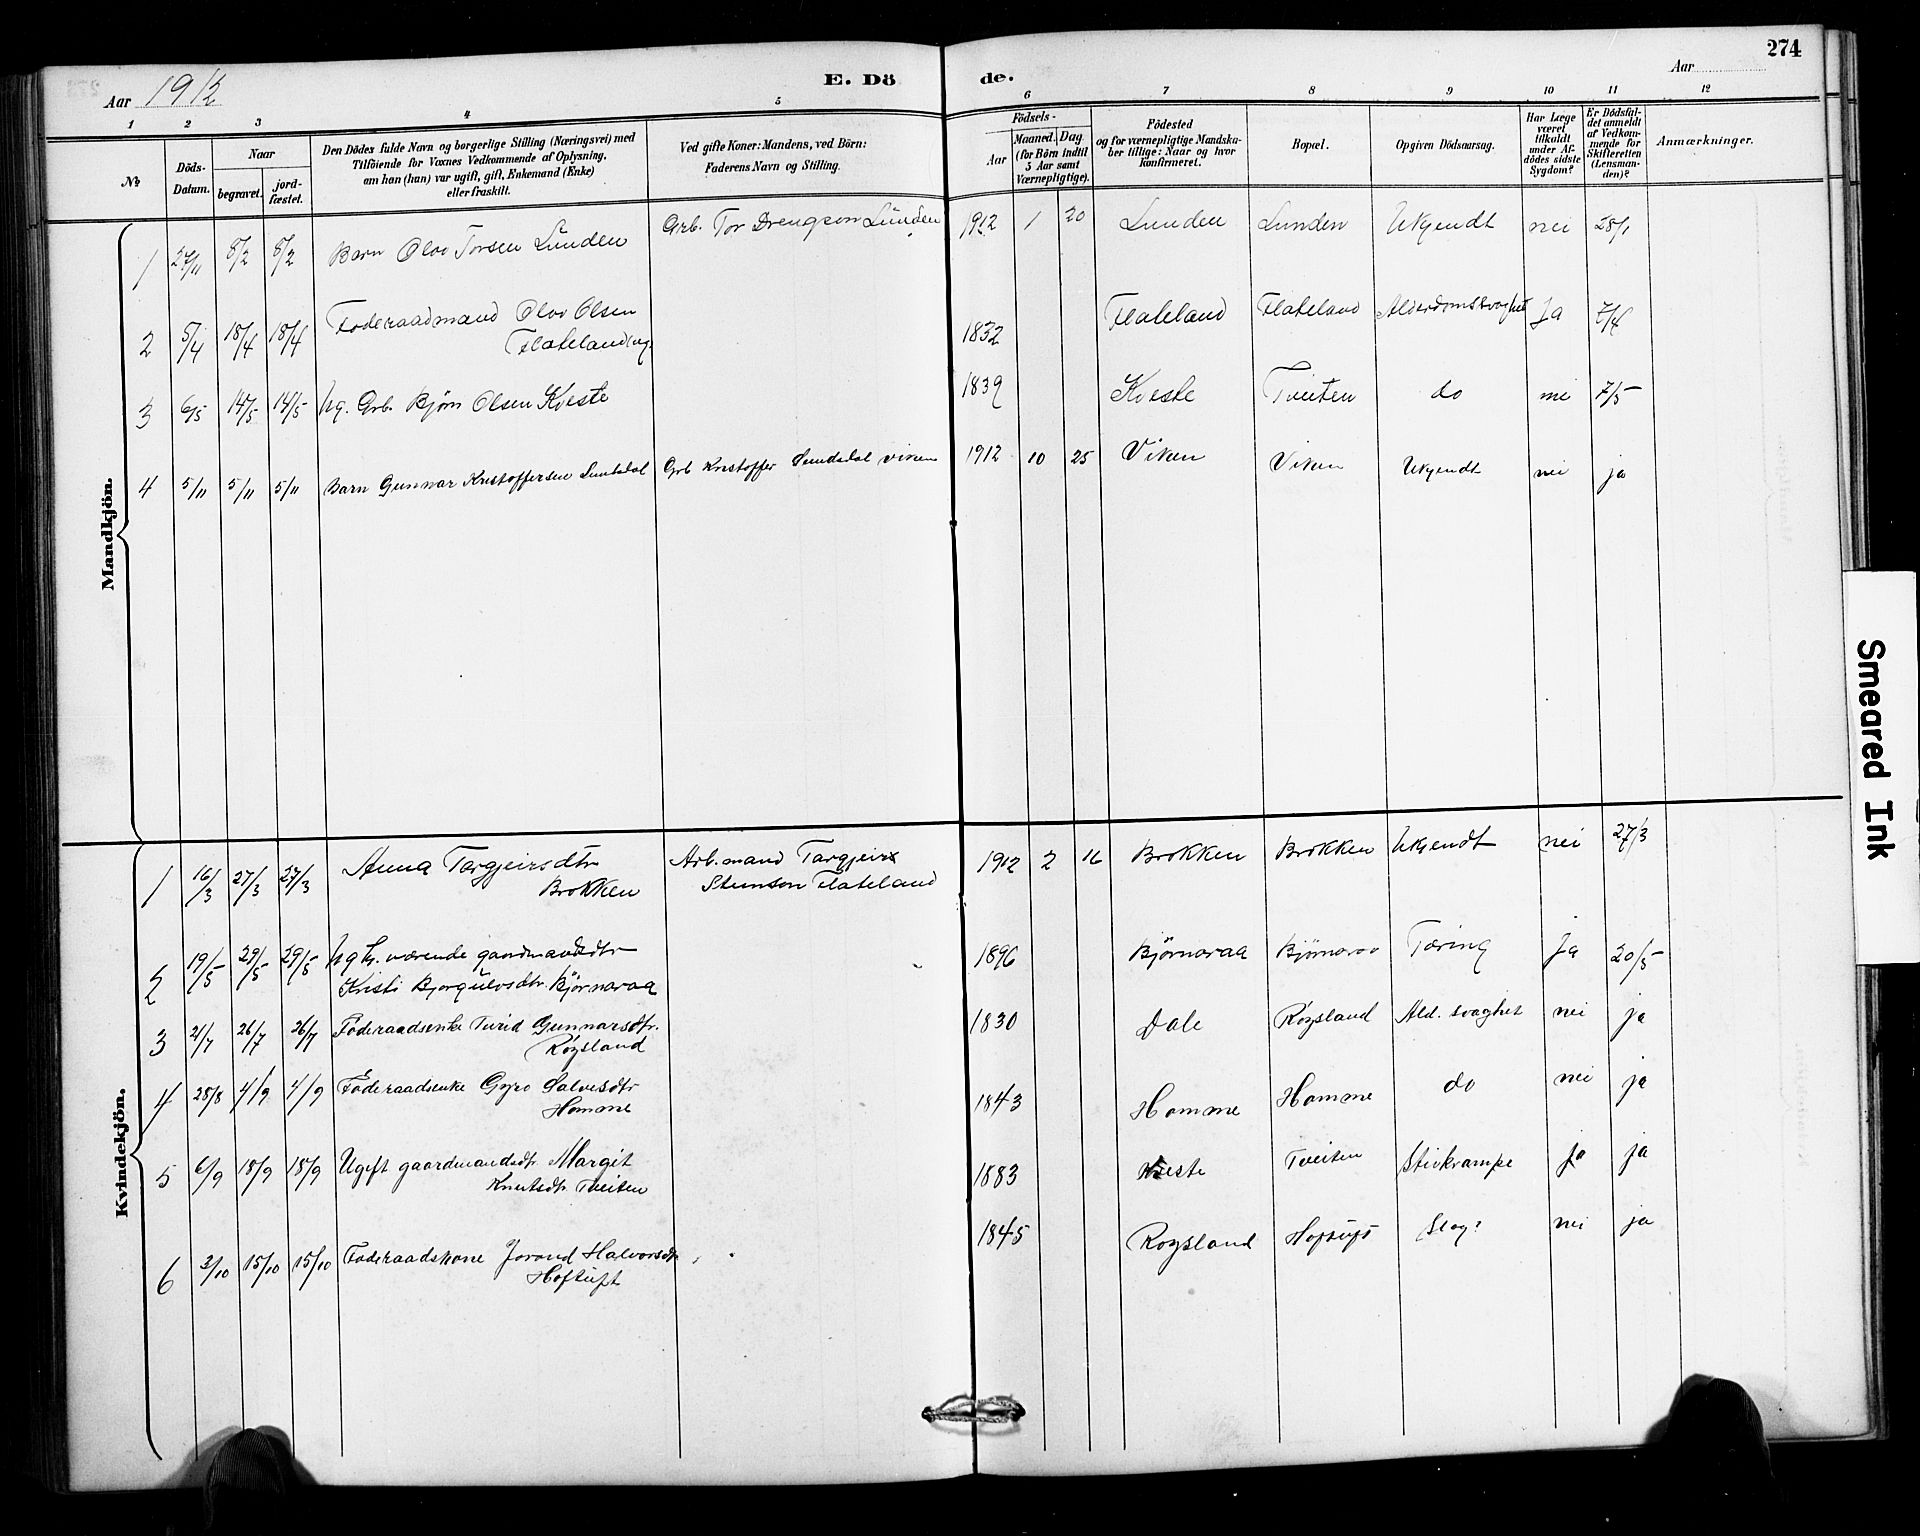 274
Aar 1912
E. Döde.
Aar
1 2 3 4 5 6 7 8 9 10 11 12
№
Döds-Datum.
Naar
begravet.
jord-fæstet.
Den Dödes fulde Navn og borgerlige Stilling (Næringsvei) med
Tilföiende for Voxnes Vedkommende af Oplysning,
om han (hun) var ugift, gift, Enkemand (Enke)
eller fraskilt.
Ved gifte Koner: Mandens, ved Börn:
Faderens Navn og Stilling.
Födsels-
Aar
Maaned. Dag
(for Börn indtil
5 Aar samt
Værnepligtige).
Födested
og for værnepligtige Mandska-
ber tillige: Naar og hvor
konfirmeret.
Bopæl.
Opgiven Dödsaarsag.
Har Læge
været
tilkaldt
under Af-
dödes sidste
Sygdom?
Er Dödsfal-
det anmeldt
af Vedkom-
mende for
Skifteretten
(Lensman-
den)?
Anmærkninger.
Mandkjön.
1 27/11 8/2 8/2 Barn Olav Torsen Lunden Grb. Tor Drengson Lunden 1912 1 20 Lunden Lunden Ukjendt nei 28/1
2 5/4 18/4 18/4 Föderaadmand Olav Olsen
Flateland 1832 Flateland Flateland Alderdomssvaghet Ja 7/4
3 6/5 14/5 14/5 Ug. Grb. Bjørn Olsen Kveste 1839 Kveste Tveiten do nei 7/5
4 5/11 5/11 5/11 Barn Gunnar Kristoffersen Sundsdal Grb Kristoffer Sundsdal Viken 1912 10 25 Viken Viken Ukjendt nei ja
Kvindekjön.
1 16/3 27/3 27/3 Anna Targjeirsdtr
Brokken Arb.mand Targjeir
Steinson Flateland 1912 2 16 Brokken Brokken Ukjendt nei 27/3
2 19/5 29/5 29/5 Ug hj. værende gaardmandsdtr
Kristi Bjorgulvsdtr. Bjørnaraa 1896 Bjørnaraa Bjørnaraa Tæring Ja 20/5
3 21/7 26/7 26/7 Föderaadsenke Turid Gunnarsdtr.
Röysland 1830 Dale Röysland Ald. svaghet nei ja
4 28/8 4/9 4/9 Föderaadsenke Gyro Salvesdtr
Homme 1843 Homme Homme do nei ja
5 6/9 18/9 18/9 Ugift gaardmandsdtr Margit
Knutsdtr Tveiten 1883 Kveste Tveiten Stivkrampe ja ja
6 2/10 15/10 15/10 Föderaadskone Jorand Halvorsdtr
Hoftuft 1845 Roysland Hoftuft Slag? nei ja
Smeared Ink